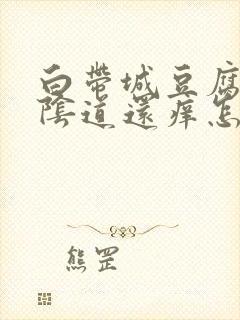 白带城豆腐
陰道還痒怎
熊罡